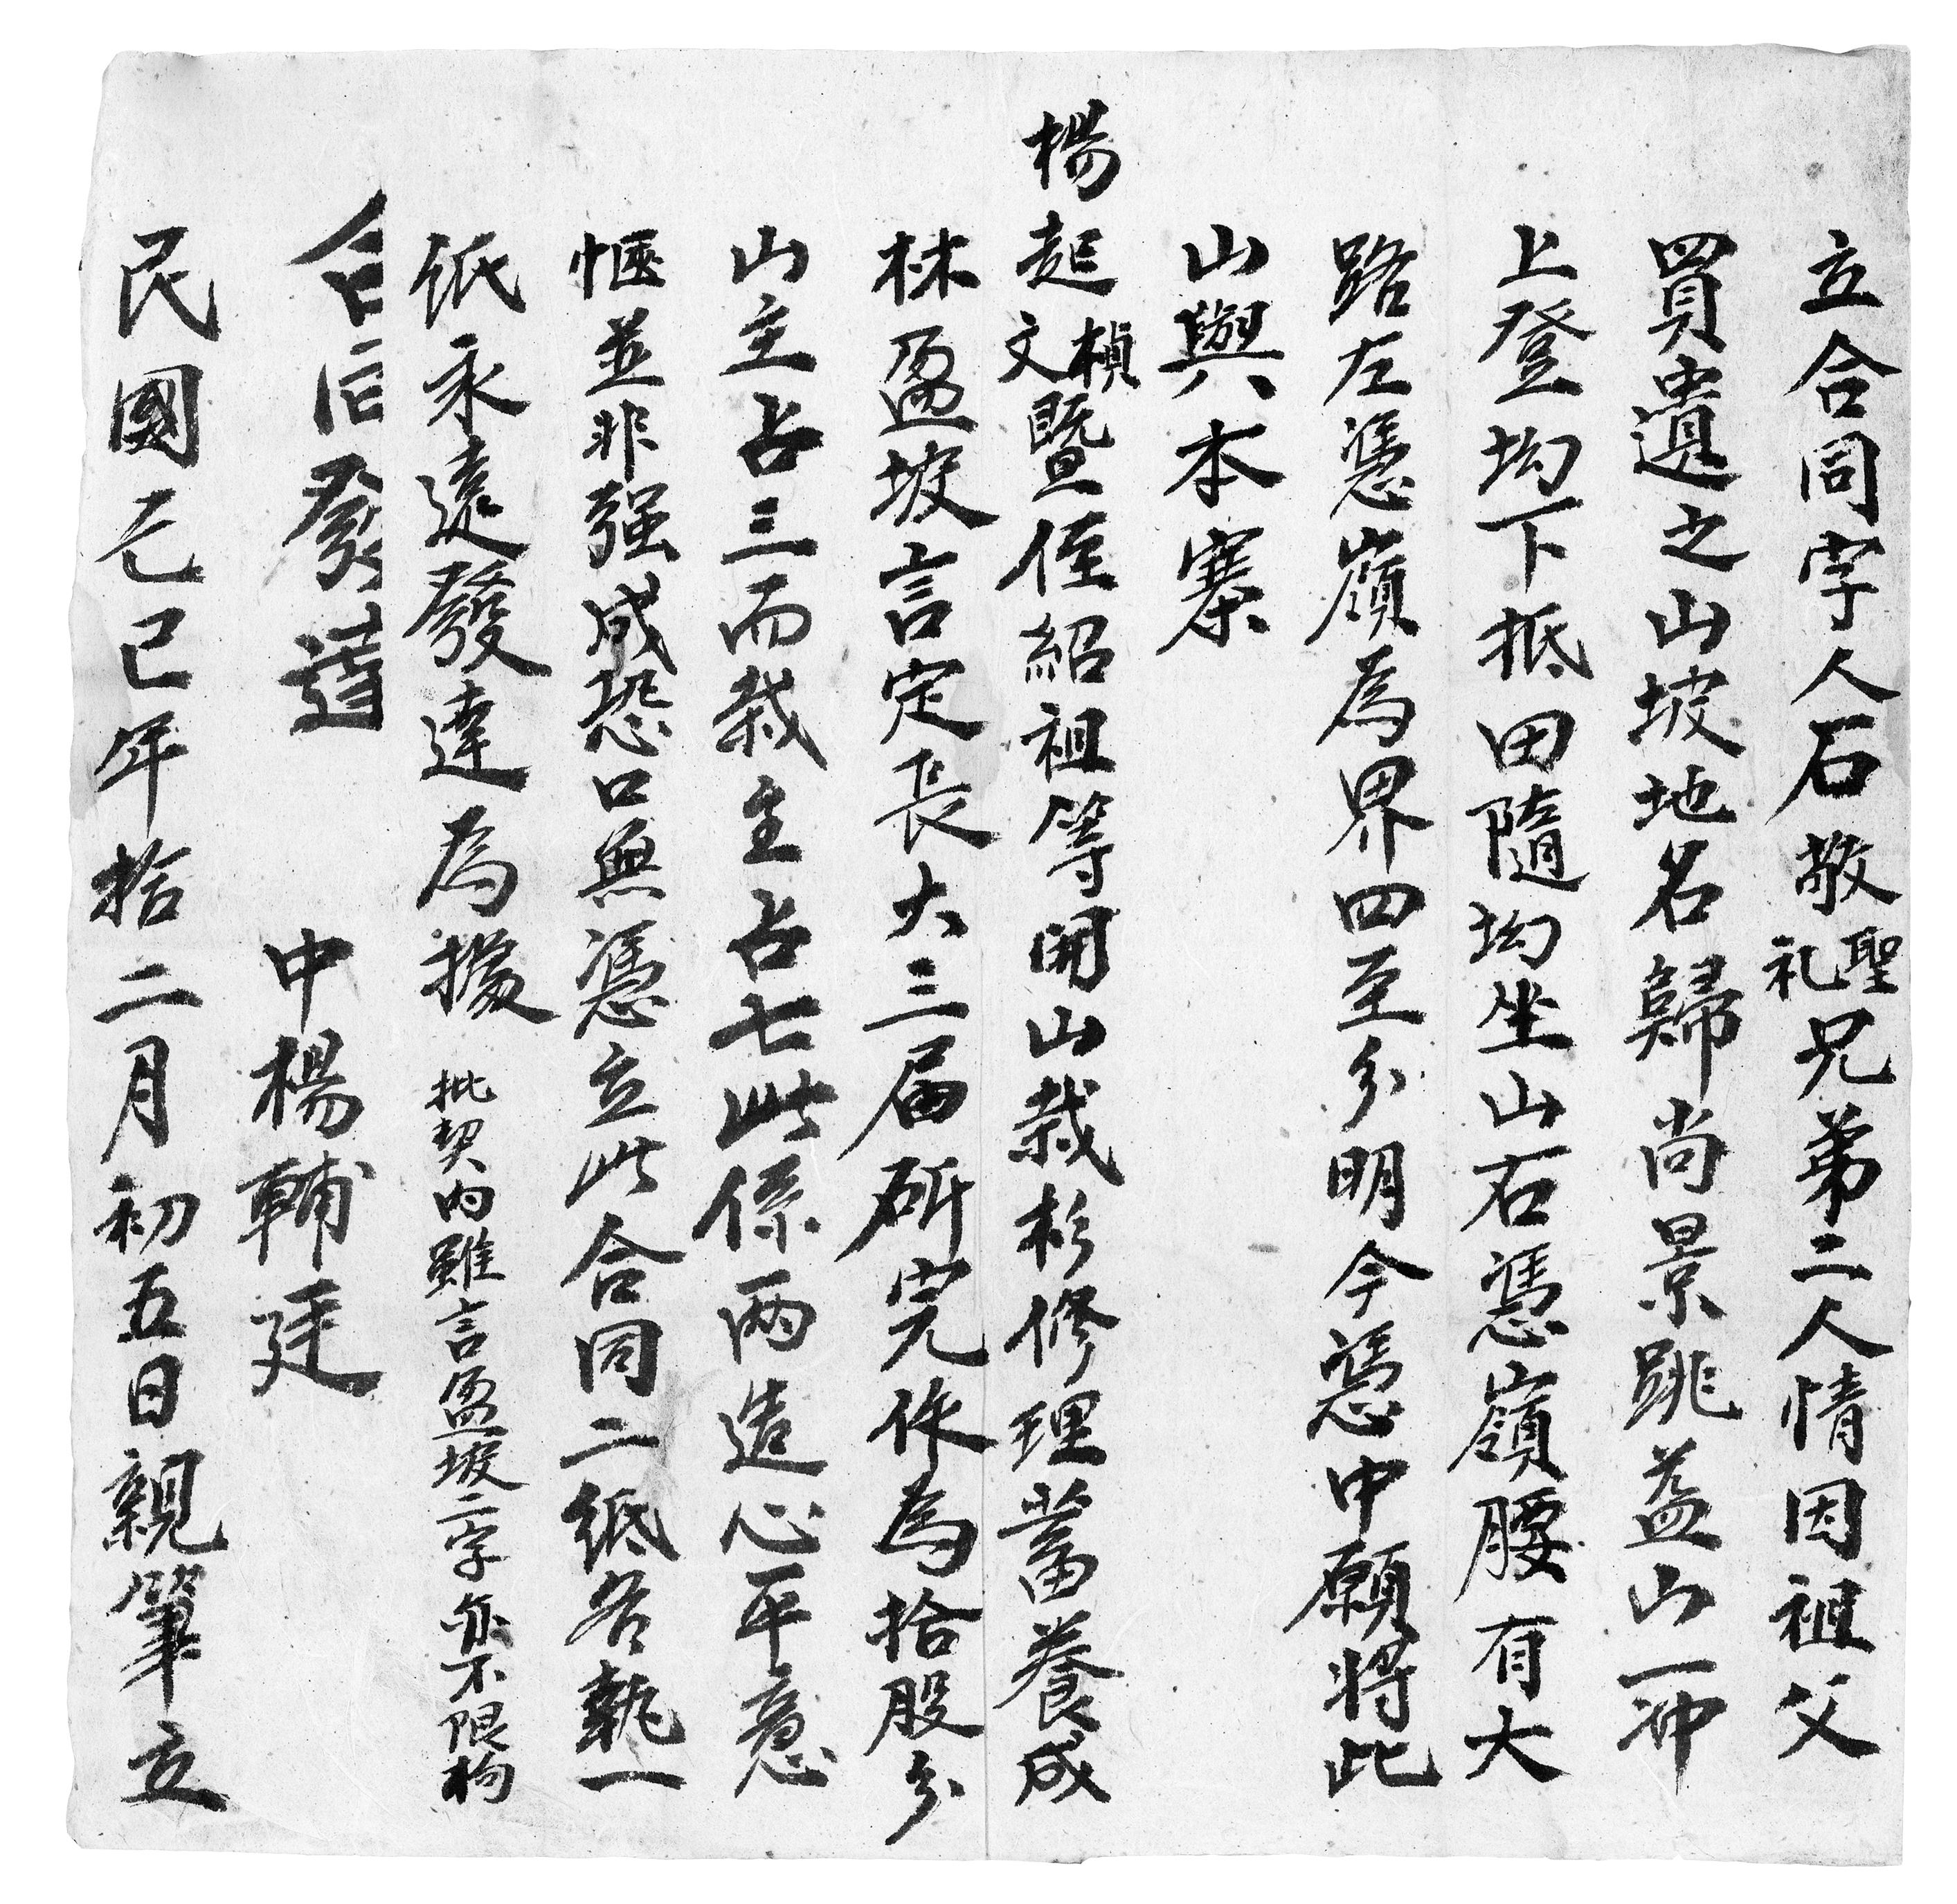 立合同字人石敬聖礼兄弟二人情因祖父
買遺之山坡地名歸尚景跳益山一冲
上登坳下抵田隨坳坐山右憑嶺腰有大
路左憑嶺為界四至分明今憑中願將此
山與本寨
楊起楨文暨侄紹祖等開山栽杉修理蓄養成
林盈坡言定長大三届斫完作為拾股分
山主占三而栽主占七此係兩造心平意
愜並非强成恐口無憑立此合同二紙各執一
紙永遠發達為據 批契内雖言盈坡二字亦不限拘
合同發達 中楊輔廷
民國己巳年拾二月初五日親筆立